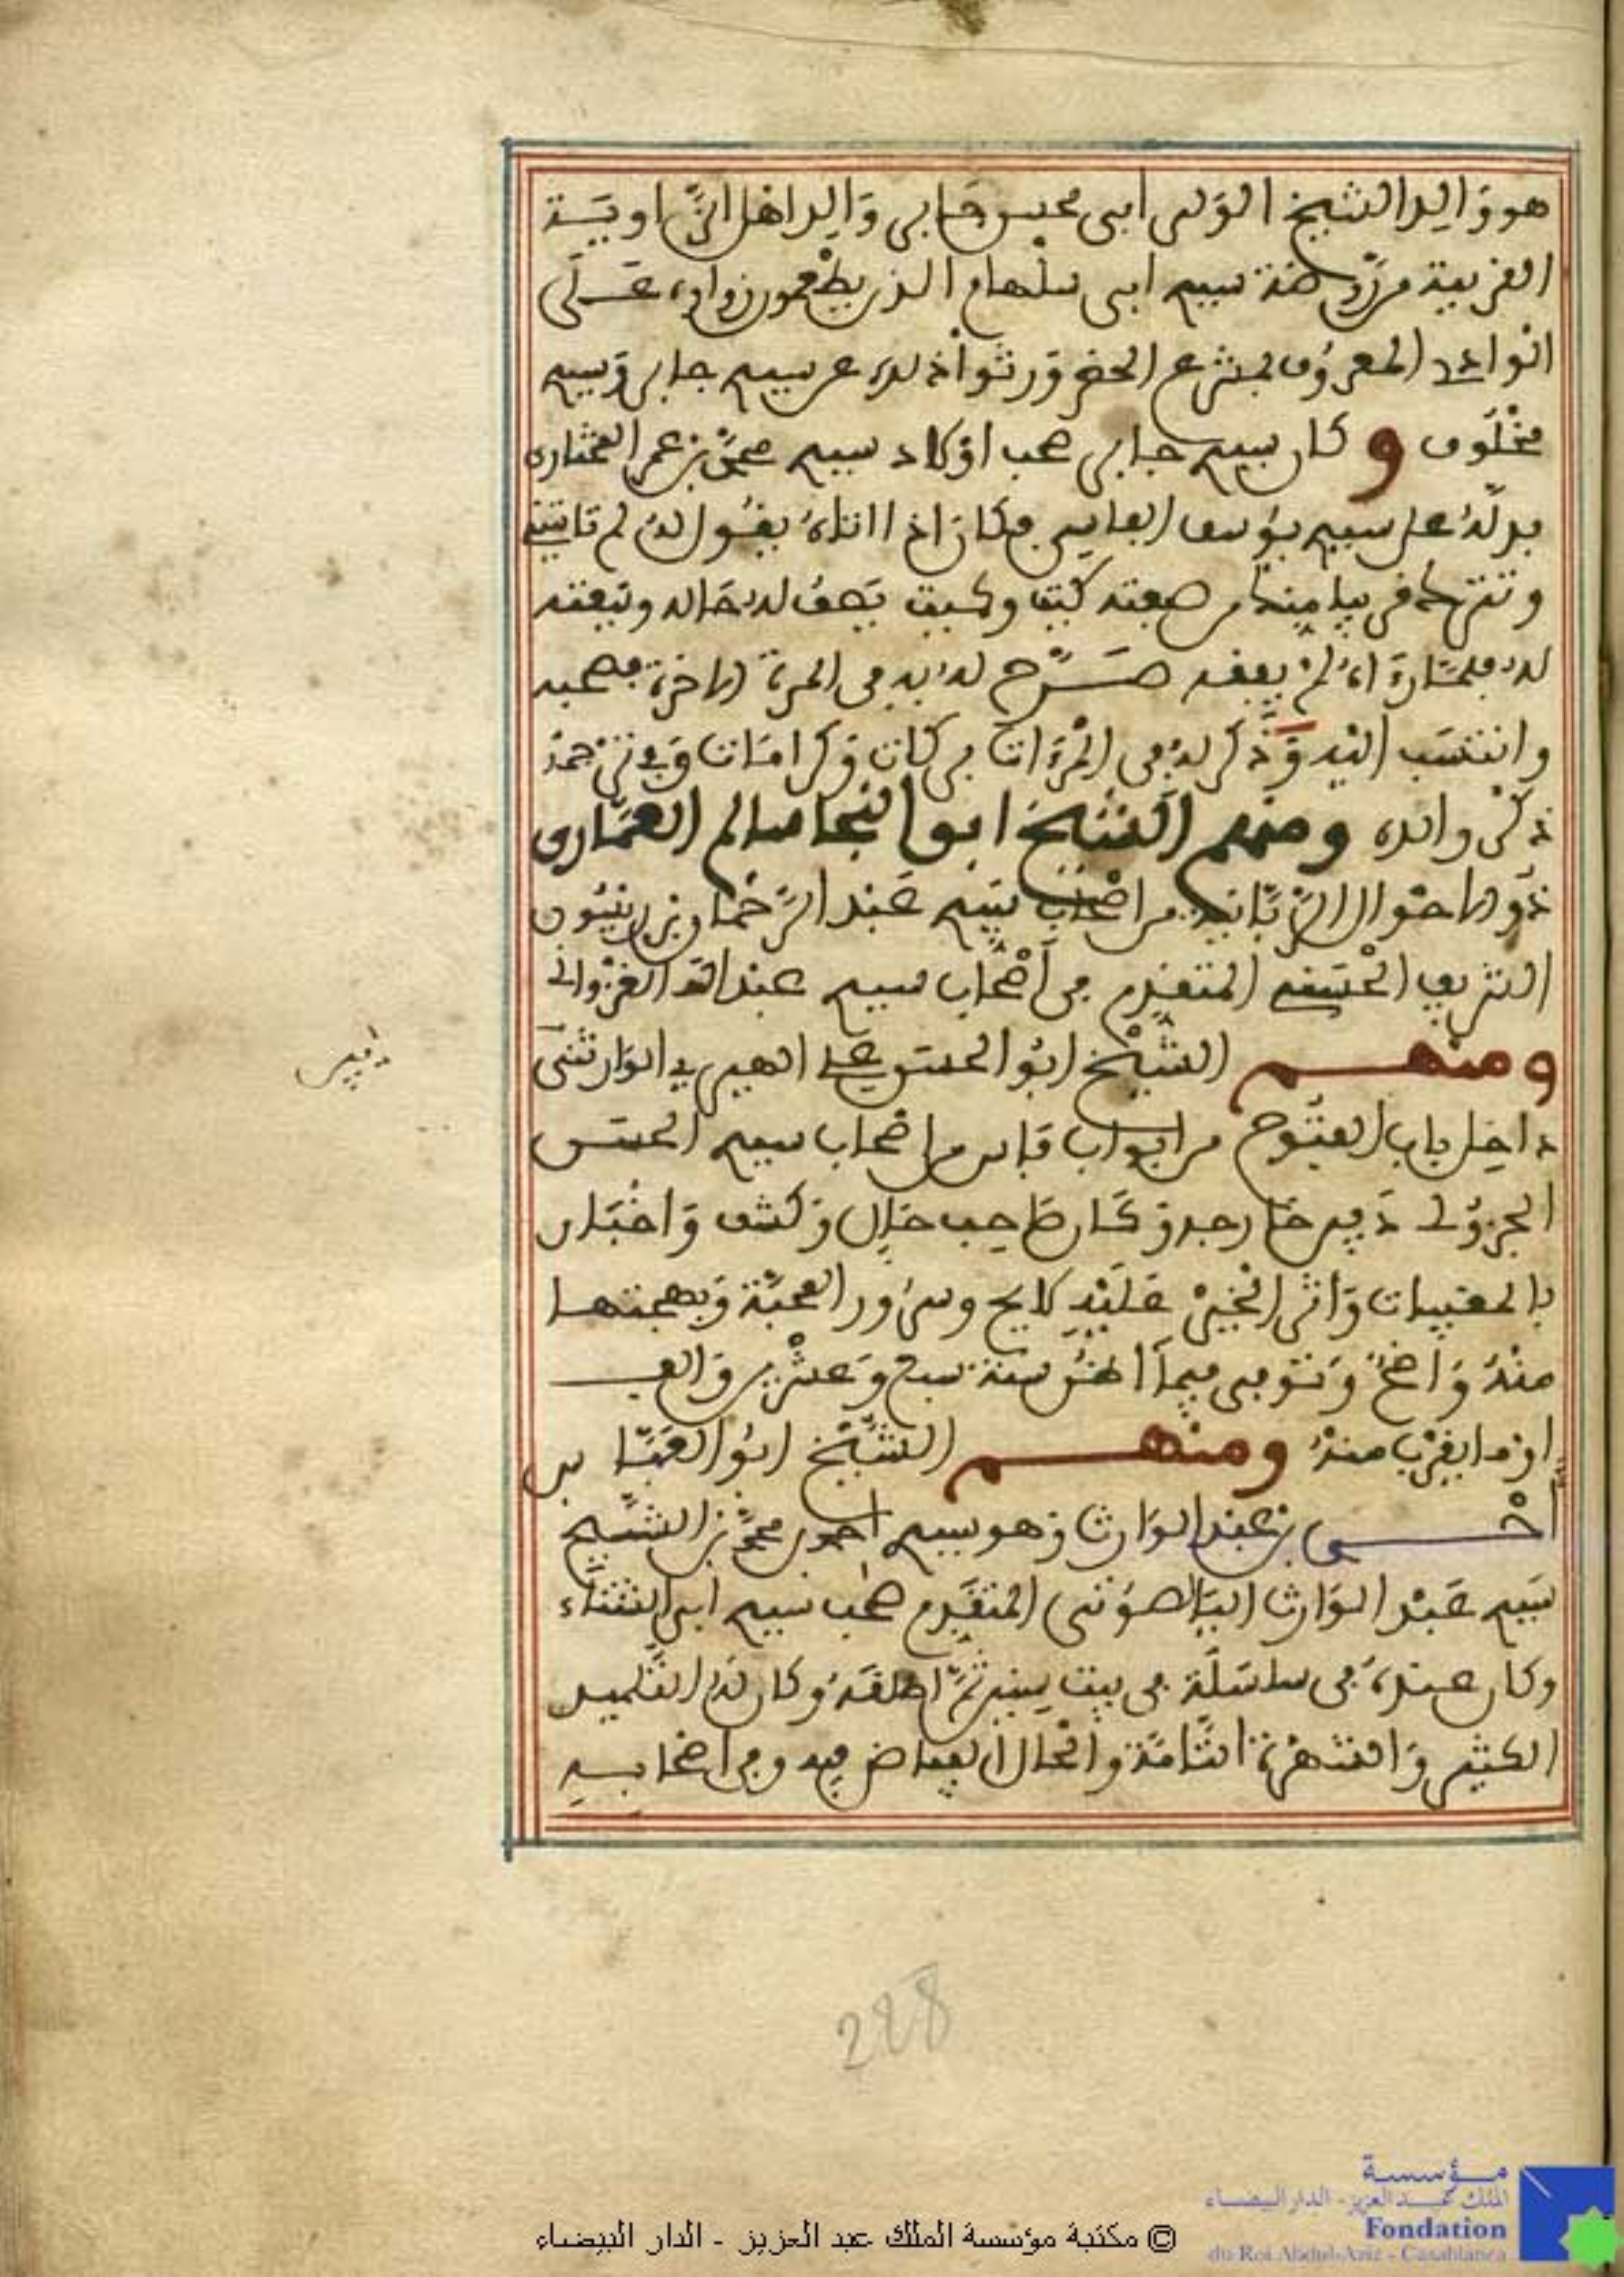 هو وَالِد الشيخ الوَلي ابى محيس جَابى وَالِد اهل الزَّاوِيَة
الغربية مرَّوضة سيدي ابى سلهام الذين يطعمون زواره عَلَى
الوادي المعرُوف بمشرع الحضر وَرثوا ذلك عن سيدي جابر وَسيدي
مخلُوف و كان سيدي جابر صحب اوْلاد سيدي محمد بن عمر المختارى
يدلُّهُ على سيدي يوسف الفاسي فكان اذا اتاهُ يقُول لهُ لم تاتيني
من صفته كيت وكيت يَصف له حَاله وَينعته
له فلمَّا رَءاهُ لم يفقد صَرَّح لهُ به في المرة الاخرة فصحبه
وانتسَب اليه وَذكر لهُ في المرْءات بركات وَكرامات
ذكر والده ومنهم الشيخ ابو النجا سالم العمَّارى
ذُو الاحوَال الرَّبَّانية من اصحَاب سيدي عَبد الرَّحمان بن ريسُون
الشريف الحسَني المتقدم من اَصْحاب سيدي عبد الله الغزْوانى
ومنهم الشَّيْخ ابُو الحسَن علي الوارثنى
داخل باب الفتُوح من ابواب فاس من اصْحاب سيدي الحسَن
الجزُولى دَفين خارجه وَكان صَاحِب حَال وَكشف وَاخبَار
بالمغيبات وَاثر الخَير عَلَيْه لايح وسرُور المحبَّة وَبهجتها
منْهُ وَاضحٌ وَتوفى فيما اظنُّ سنة سبع وَعشْرين وَالف
اوْ ما يقرُب منهُ ومنهم الشَّيْخ ابُو العبَّاس
اَحْمد بن عَبد الوَارث وَهو سيدي احمد بن محمد بن الشَّيخ
سيدي عَبْد الوَارث اليَالصُوتى المتقدِم صحب سيدي ابى الشتاء
وكان عنده في سلسَلة في بيت سنين ثمَّ اطلقَهُ وَكان لَهُ التَّلميد
الكثير وَالشهْرة التَّامَّة وَالحال الفياض فيه ومن اصحابه
دفين
228
© مكتبة مؤسسة الملك عبد العزيز - الدار البيضاء
مؤسسة
الملك عبد العزيز - الدار البيضاء
Fondation
du Roi Abdul-Aziz - Casablanca